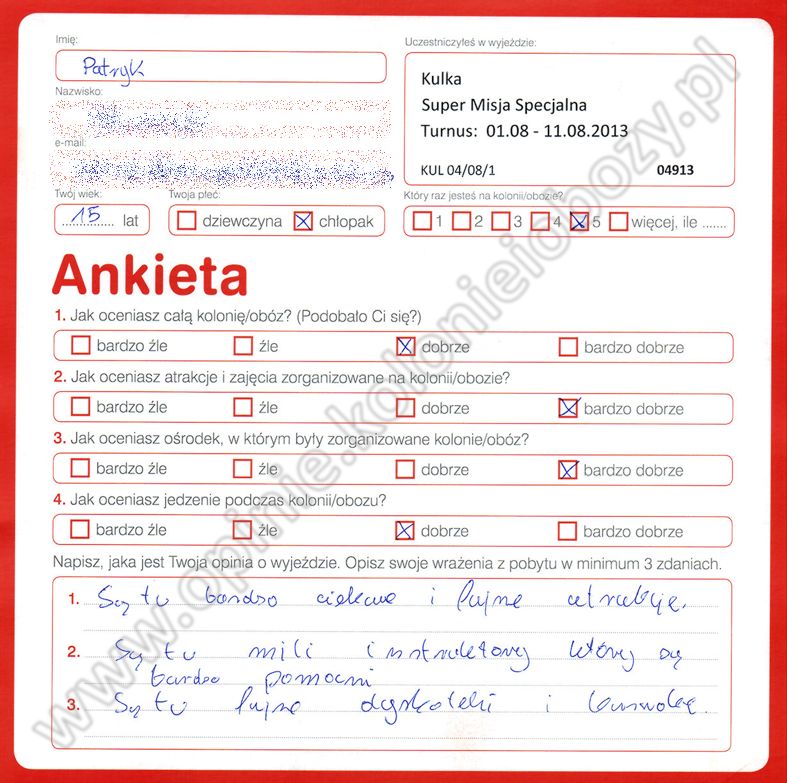 Imię:
Patryk
Nazwisko:
e-mail:
Uczestniczyłeś w wyjeździe:
Kulka
Super Misja Specjalna
Turnus: 01.08 - 11.08.2013
KUL 04/08/1 04913
Twój wiek:
15 lat
Twoja płeć:
dziewczyna chłopak
Który raz jesteś na kolonii/obozie?
1 2 3 4 5 więcej, ile .......
Ankieta
1. Jak oceniasz całą kolonię/obóz? (Podobało Ci się?)
bardzo źle źle dobrze bardzo dobrze
2. Jak oceniasz atrakcje i zajęcia zorganizowane na kolonii/obozie?
bardzo źle źle dobrze bardzo dobrze
3. Jak oceniasz ośrodek, w którym były zorganizowane kolonie/obóz?
bardzo źle źle dobrze bardzo dobrze
4. Jak oceniasz jedzenie podczas kolonii/obozu?
bardzo źle źle dobrze bardzo dobrze
Napisz, jaka jest Twoja opinia o wyjeździe. Opisz swoje wrażenia z pobytu w minimum 3 zdaniach.
1. Są tu bardzo ciekawe i fajne atrakcje.
2. Są tu mili instruktorzy którzy są
bardzo pomocni
3. Są tu fajne dyskoteki i
www.opinie.kolonieiobozy.pl